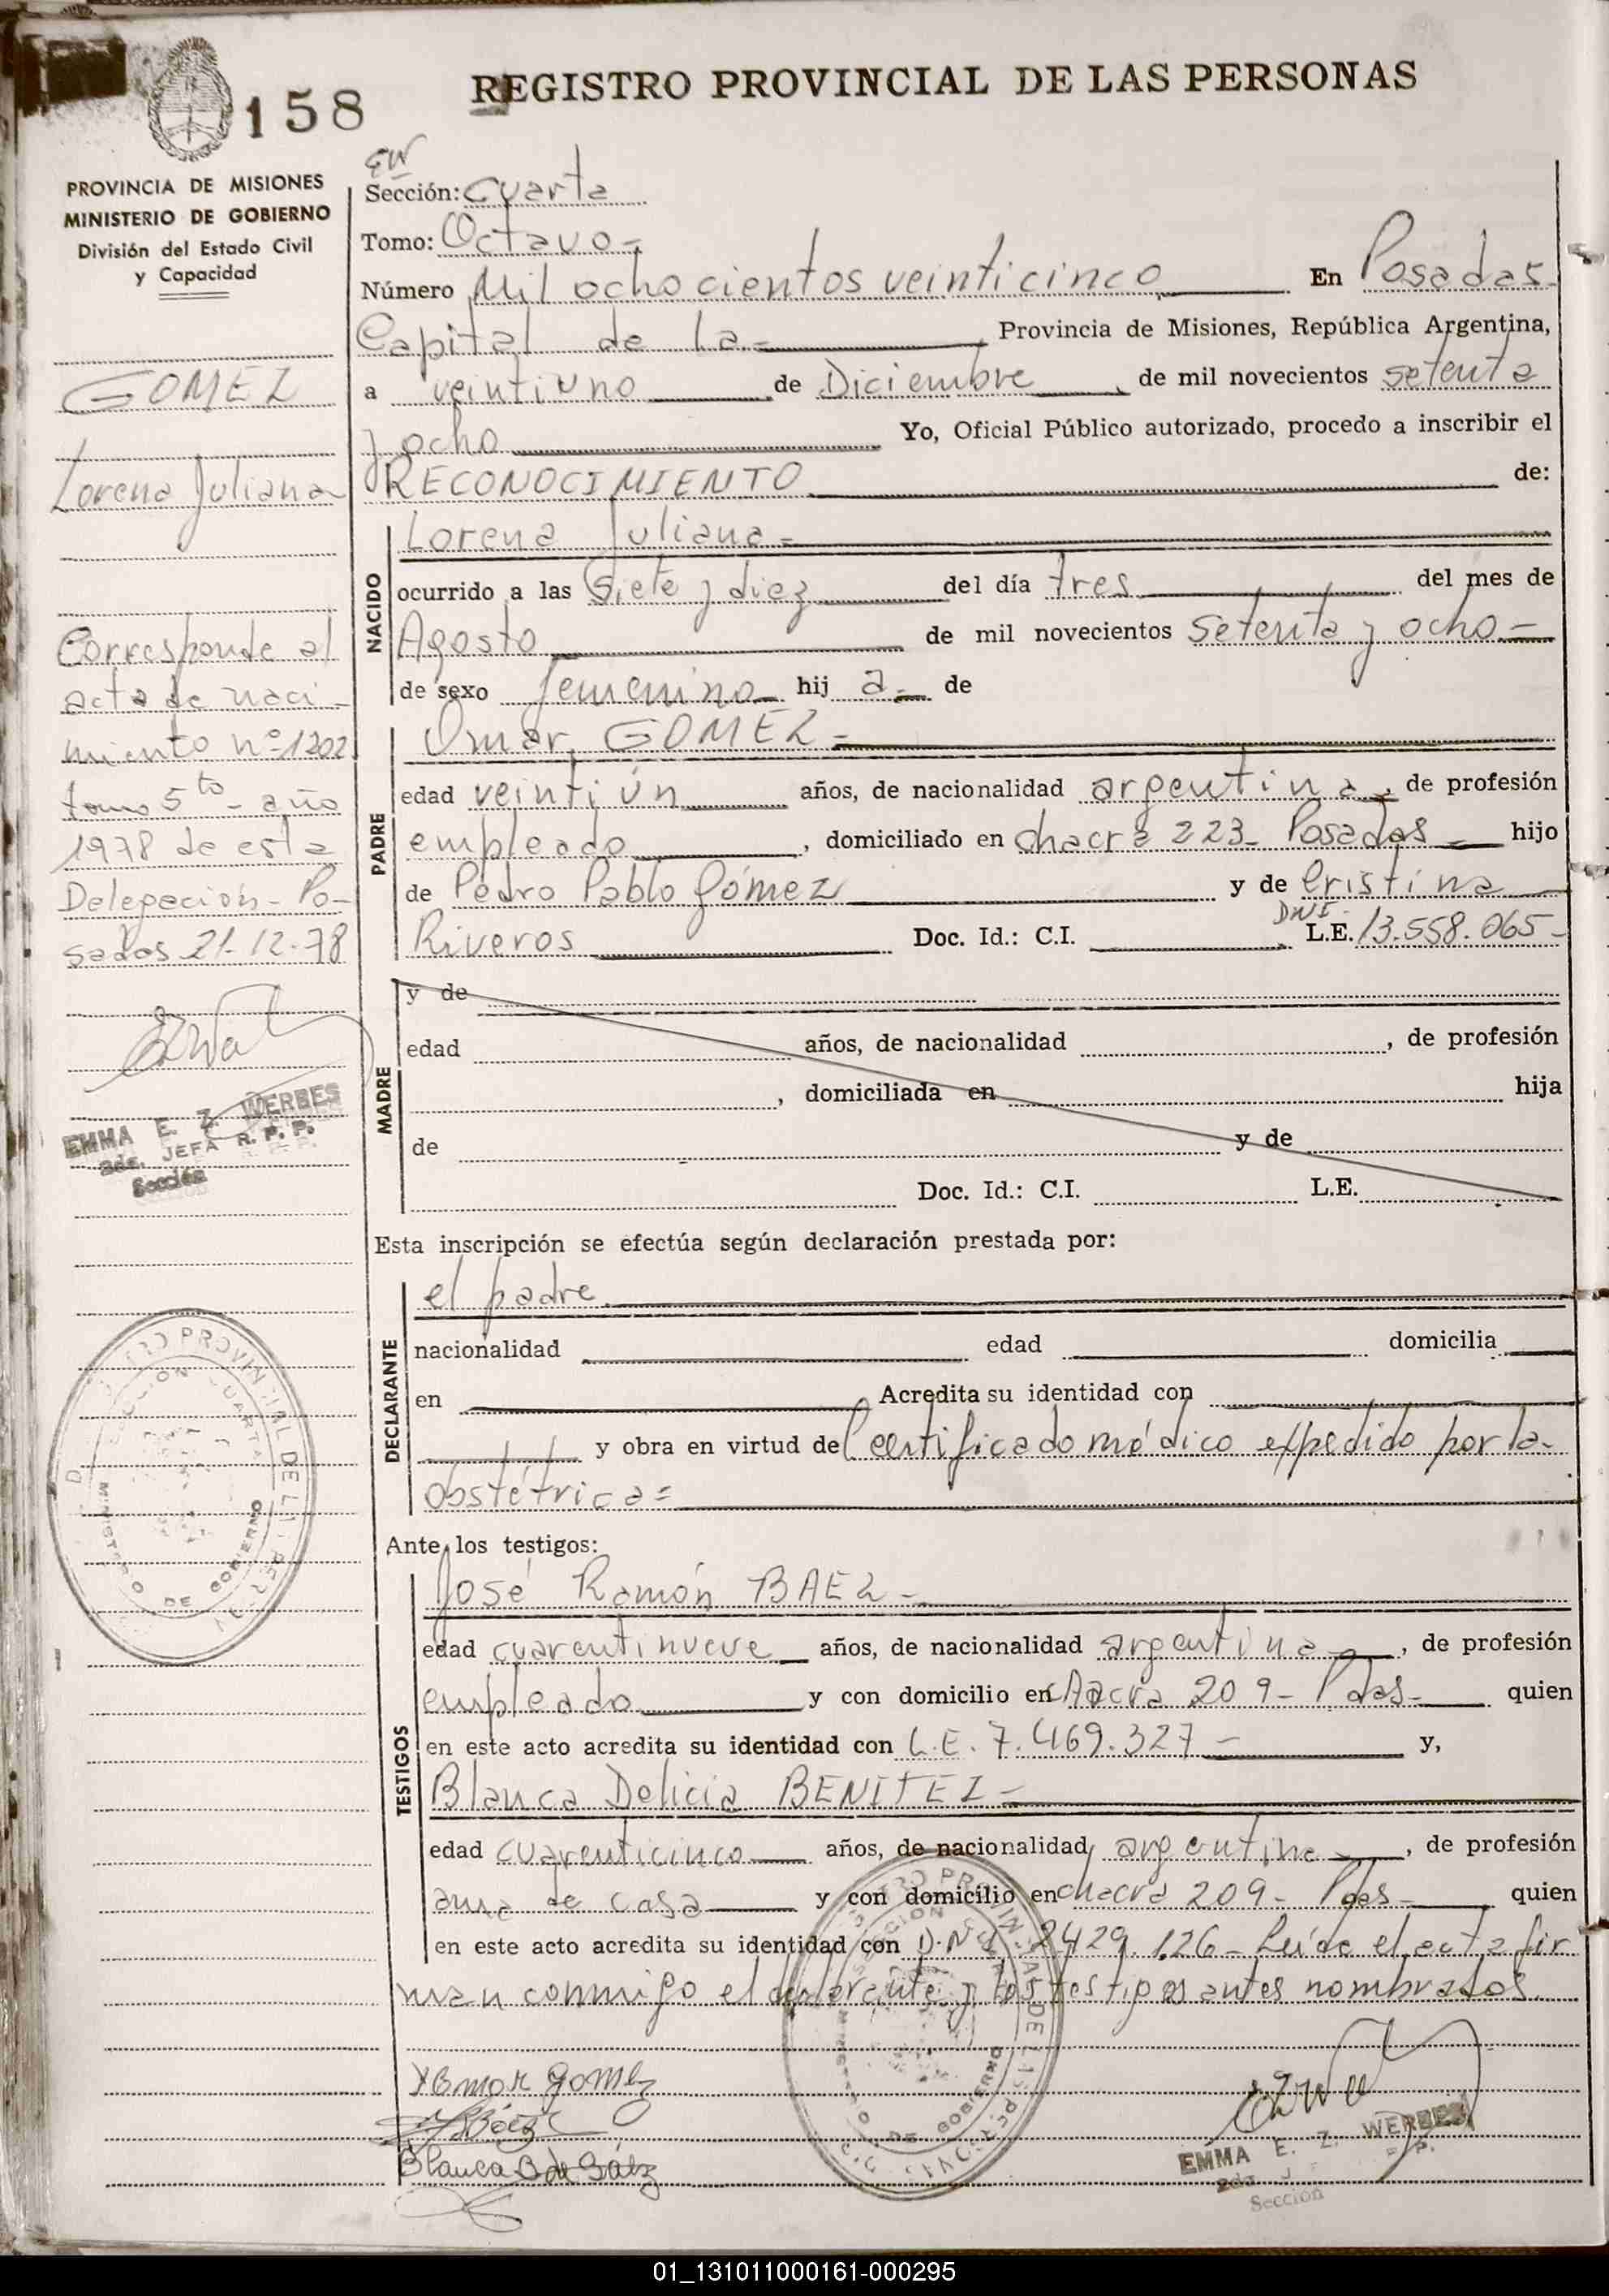 158
REGISTRO PROVINCIAL DE LAS PERSONAS
PROVINCIA DE MISIONES
MINISTERIO DE GOBIERNO
División del Estado Civil
y Capacidad
GOMEZ
Lorena Juliana
Corresponde al
acta de naci-
miento nº 1202
tomo 5to - año
1978 de esta
Delegación - Po-
sadas 21-12-78
EMMA E. Z. WERBES
2da. JEFA R. P. P.
Sección
Sección: Cuarta
Tomo: Octavo-
Número Mil ochocientos veinticinco En Posadas-
Capital de la- Provincia de Misiones, República Argentina,
a veintiuno de Diciembre, de mil novecientos setenta
y ocho Yo, Oficial Público autorizado, procedo a inscribir el
RECONOCIMIENTO de:
NACIDO
Lorena Juliana=
ocurrido a las Siete y diez del día tres del mes de
Agosto de mil novecientos setenta y ocho-
de sexo femenino hij a- de
PADRE
Omar, GOMEZ-
edad veintiún años, de nacionalidad argentina, de profesión
empleado, domiciliado en chacra 223- Posadas- hijo
de Pedro Pablo Gómez y de Cristina
DNI-
Riveros Doc. Id.: C.I. L.E. 13.558.065-
MADRE
y de
edad años, de nacionalidad , de profesión
, domiciliada en hija
de y de
Doc. Id.: C.I. L.E.
Esta inscripción se efectúa según declaración prestada por:
DECLARANTE
el padre
nacionalidad edad domicilia
en Acredita su identidad con
y obra en virtud del certificado médico expedido por la-
obstétrica=
Ante los testigos:
TESTIGOS
José Ramón BAEZ-
edad cuarentinueve años, de nacionalidad argentina, de profesión
empleado y con domicilio en chacra 209- Pdas- quien
en este acto acredita su identidad con L.E. 7.469.327- y,
Blanca Delicia BENITEZ=
edad cuarenticinco años, de nacionalidad argentina, de profesión
ama de casa y con domicilio en chacra 209- Pdas- quien
en este acto acredita su identidad con D.N.I. 2429.126- Leída el acta fir
man conmigo el declarante y los testigos antes nombrados.
Omar Gomez
Báez
Blanca B de Báez
EMMA E. Z. WERBES
2da J
Sección
01_131011000161-000295